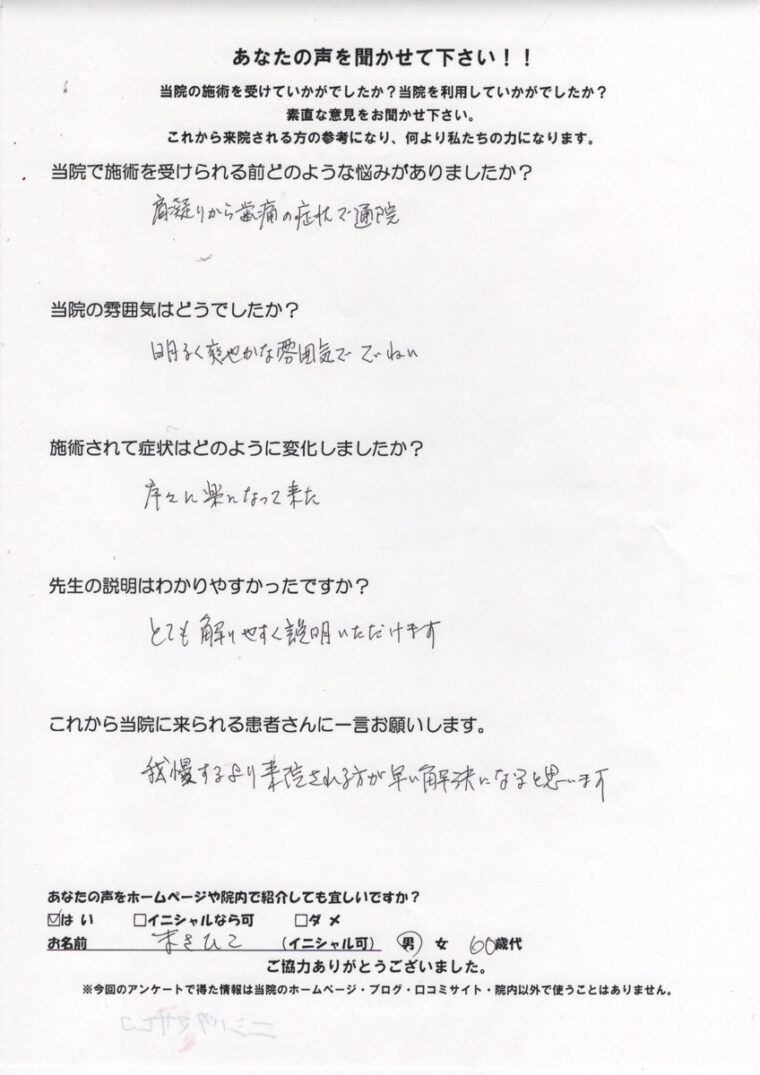 あなたの声を聞かせて下さい！！
当院の施術を受けていかがでしたか？当院を利用していかがでしたか？
素直な意見をお聞かせ下さい。
これから来院される方の参考になり、何より私たちの力になります。
当院で施術を受けられる前どのような悩みがありましたか？
肩凝りから歯痛の症状で通院
当院の雰囲気はどうでしたか？
明るく爽やかな雰囲気で
施術されて症状はどのように変化しましたか？
序々に楽になって来た
先生の説明はわかりやすかったですか？
とても解りやすく説明いただけます
これから当院に来られる患者さんに一言お願いします。
我慢するより来院される方が早い解決になると思います
あなたの声をホームページや院内で紹介しても宜しいですか？
☑はい □イニシャルなら可 □ダメ
お名前 まさひこ (イニシャル可) 男 女 60歳代
ご協力ありがとうございました。
※今回のアンケートで得た情報は当院のホームページ・ブログ・口コミサイト・院内以外で使うことはありません。